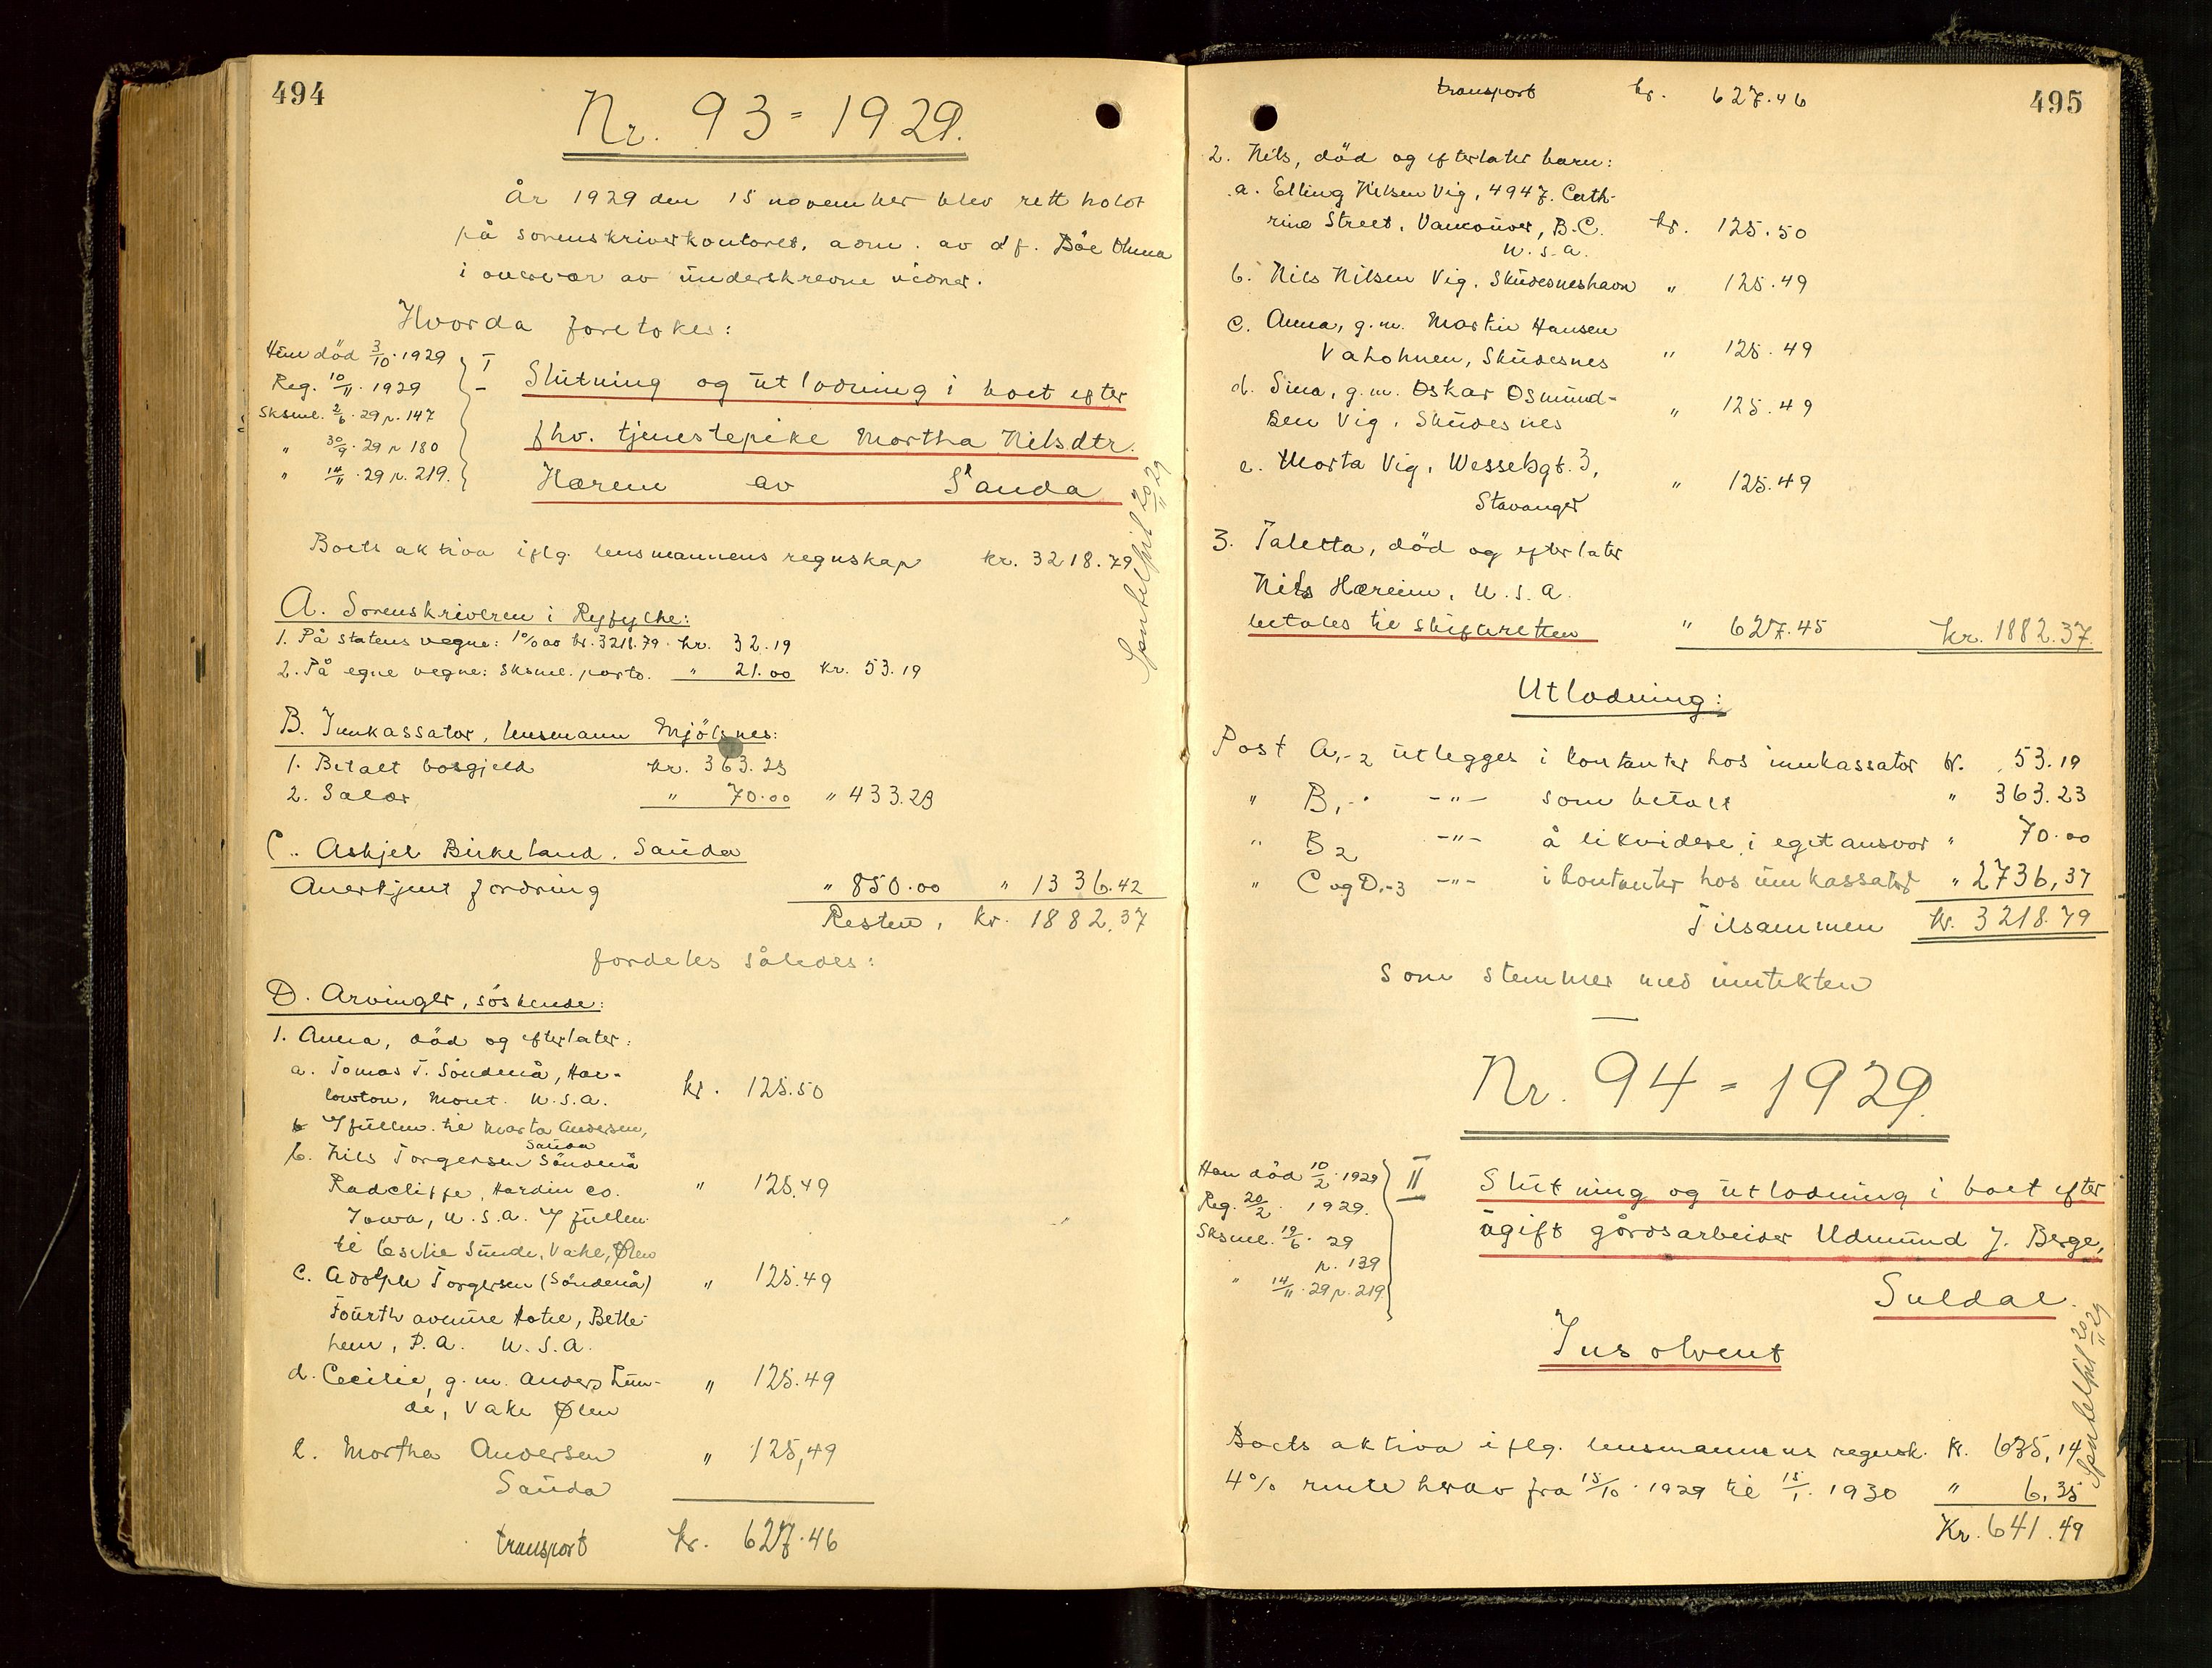 494
Nr. 93 = 1929.
År 1929 den 15 november blev rett holdt
på sorenskriverkontoret, adm. av df. Böe
i overvær av underskrevne vidner.
Hvorda foretokes:
Hun död 3/10. 1929
Reg. 10/11. 1929
Sksml. 2/6. 29 p. 147
" 30/9. 29 p 180
" 14/11. 29 p. 219.
I
Slutning og utlodning i boet efter
fhv. tjenestepike Martha Nilsdtr.
Hærem av Sauda
20/11 29
Boets aktiva iflg. lensmannens regnskap kr. 3218.79
A. Sorenskriveren i Ryfylke:
1. På statens vegne: 1% av kr. 3218.79. kr. 32.19
2. På egne vegne: sksml. porto. " 21.00 kr. 53.19
B. Innkassator, lensmann Mjölsnes:
1. Betalt bosgjeld kr. 363.23
2. Salær " 70.00 " 433.23
C. Askjel Birkeland, Sauda
Anerkjent fordring " 850.00 " 1336.42
Resten, kr. 1882,37
fordeles således:
D. Arvinger, söskende:
1. Anna, död og efterlater:
a. Tomas T. Söndenå, Har-
lowton, Mont. U.S.A. kr. 125.50
b Iffullm. til Marta Andersen,
Sauda
b. Nils Torgersen Söndenå
Radcliffe, Hardin co. " 125.49
Iowa, U.S.A. Iffullm.
til Cecilie Sunde, Vake, Ølen
c. Adolph Torgersen (Söndenå) " 125.49
Fourth avenue Hotel, Betle-
hem, P.A. U.S.A.
d. Cecilie, g.m. Anders Sun- " 125.49
de, Vake Ølen
e. Martha Andersen " 125,49
Sauda
transport kr. 627.46
495
transport kr. 627.46
2. Nils, död og efterlater barn:
a. Elling Nilsen Vig, 4947. Cath-
rine Street, Vancouver, B.C. kr. 125.50
U.S.A.
b. Nils Nilsen Vig, Skudesneshavn " 125.49
c. Anna, g.m. Martin Hansen
Vaholmen, Skudesnes " 125.49
d. Sina, g.m. Oskar Osmund-
sen Vig, Skudesnes " 125.49
e. Marta Vig, Wesselsgt. 3,
Stavanger " 125.49
3. Taletta, död og efterlater
Nils Hæreim, U.S.A.
betales til skifteretten " 627.45 kr. 1882.37.
Utlodning:
Post A,-2 utlegges i kontanter hos innkassator kr. 53.19
" B,. -"- som betalt " 363.23
" B2 -"- å likvidere i eget ansvar " 70.00
" C og D,-3 -"- i kontanter hos innkassator " 2736,37
Tilsammen kr. 3218.79
som stemmer med inntekten
Nr. 94 = 1929.
Han död 10/2. 1929
Reg. 20/2. 1929.
Sksml. 19/6. 29
p. 139
" 14/11. 29 p. 219.
II
Slutning og utlodning i boet efter
ugift gårdsarbeider Udmund J. Berge,
Suldal.
Insolvent
20/11 29
Boets aktiva iflg. lensmannens regnsk. kr. 635,14
4% rente herav fra 15/10. 1929 til 15/1. 1930 " 6,35
Kr. 641.49